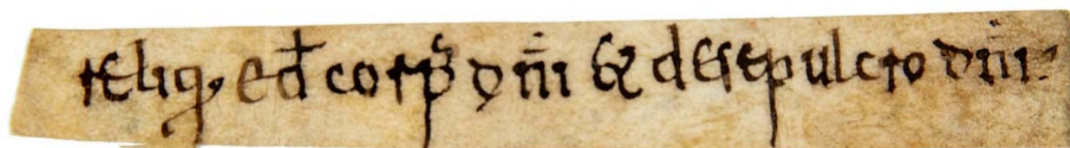 reliq, ed̄ corp̄ dn̄i & desepulcro dn̄i·